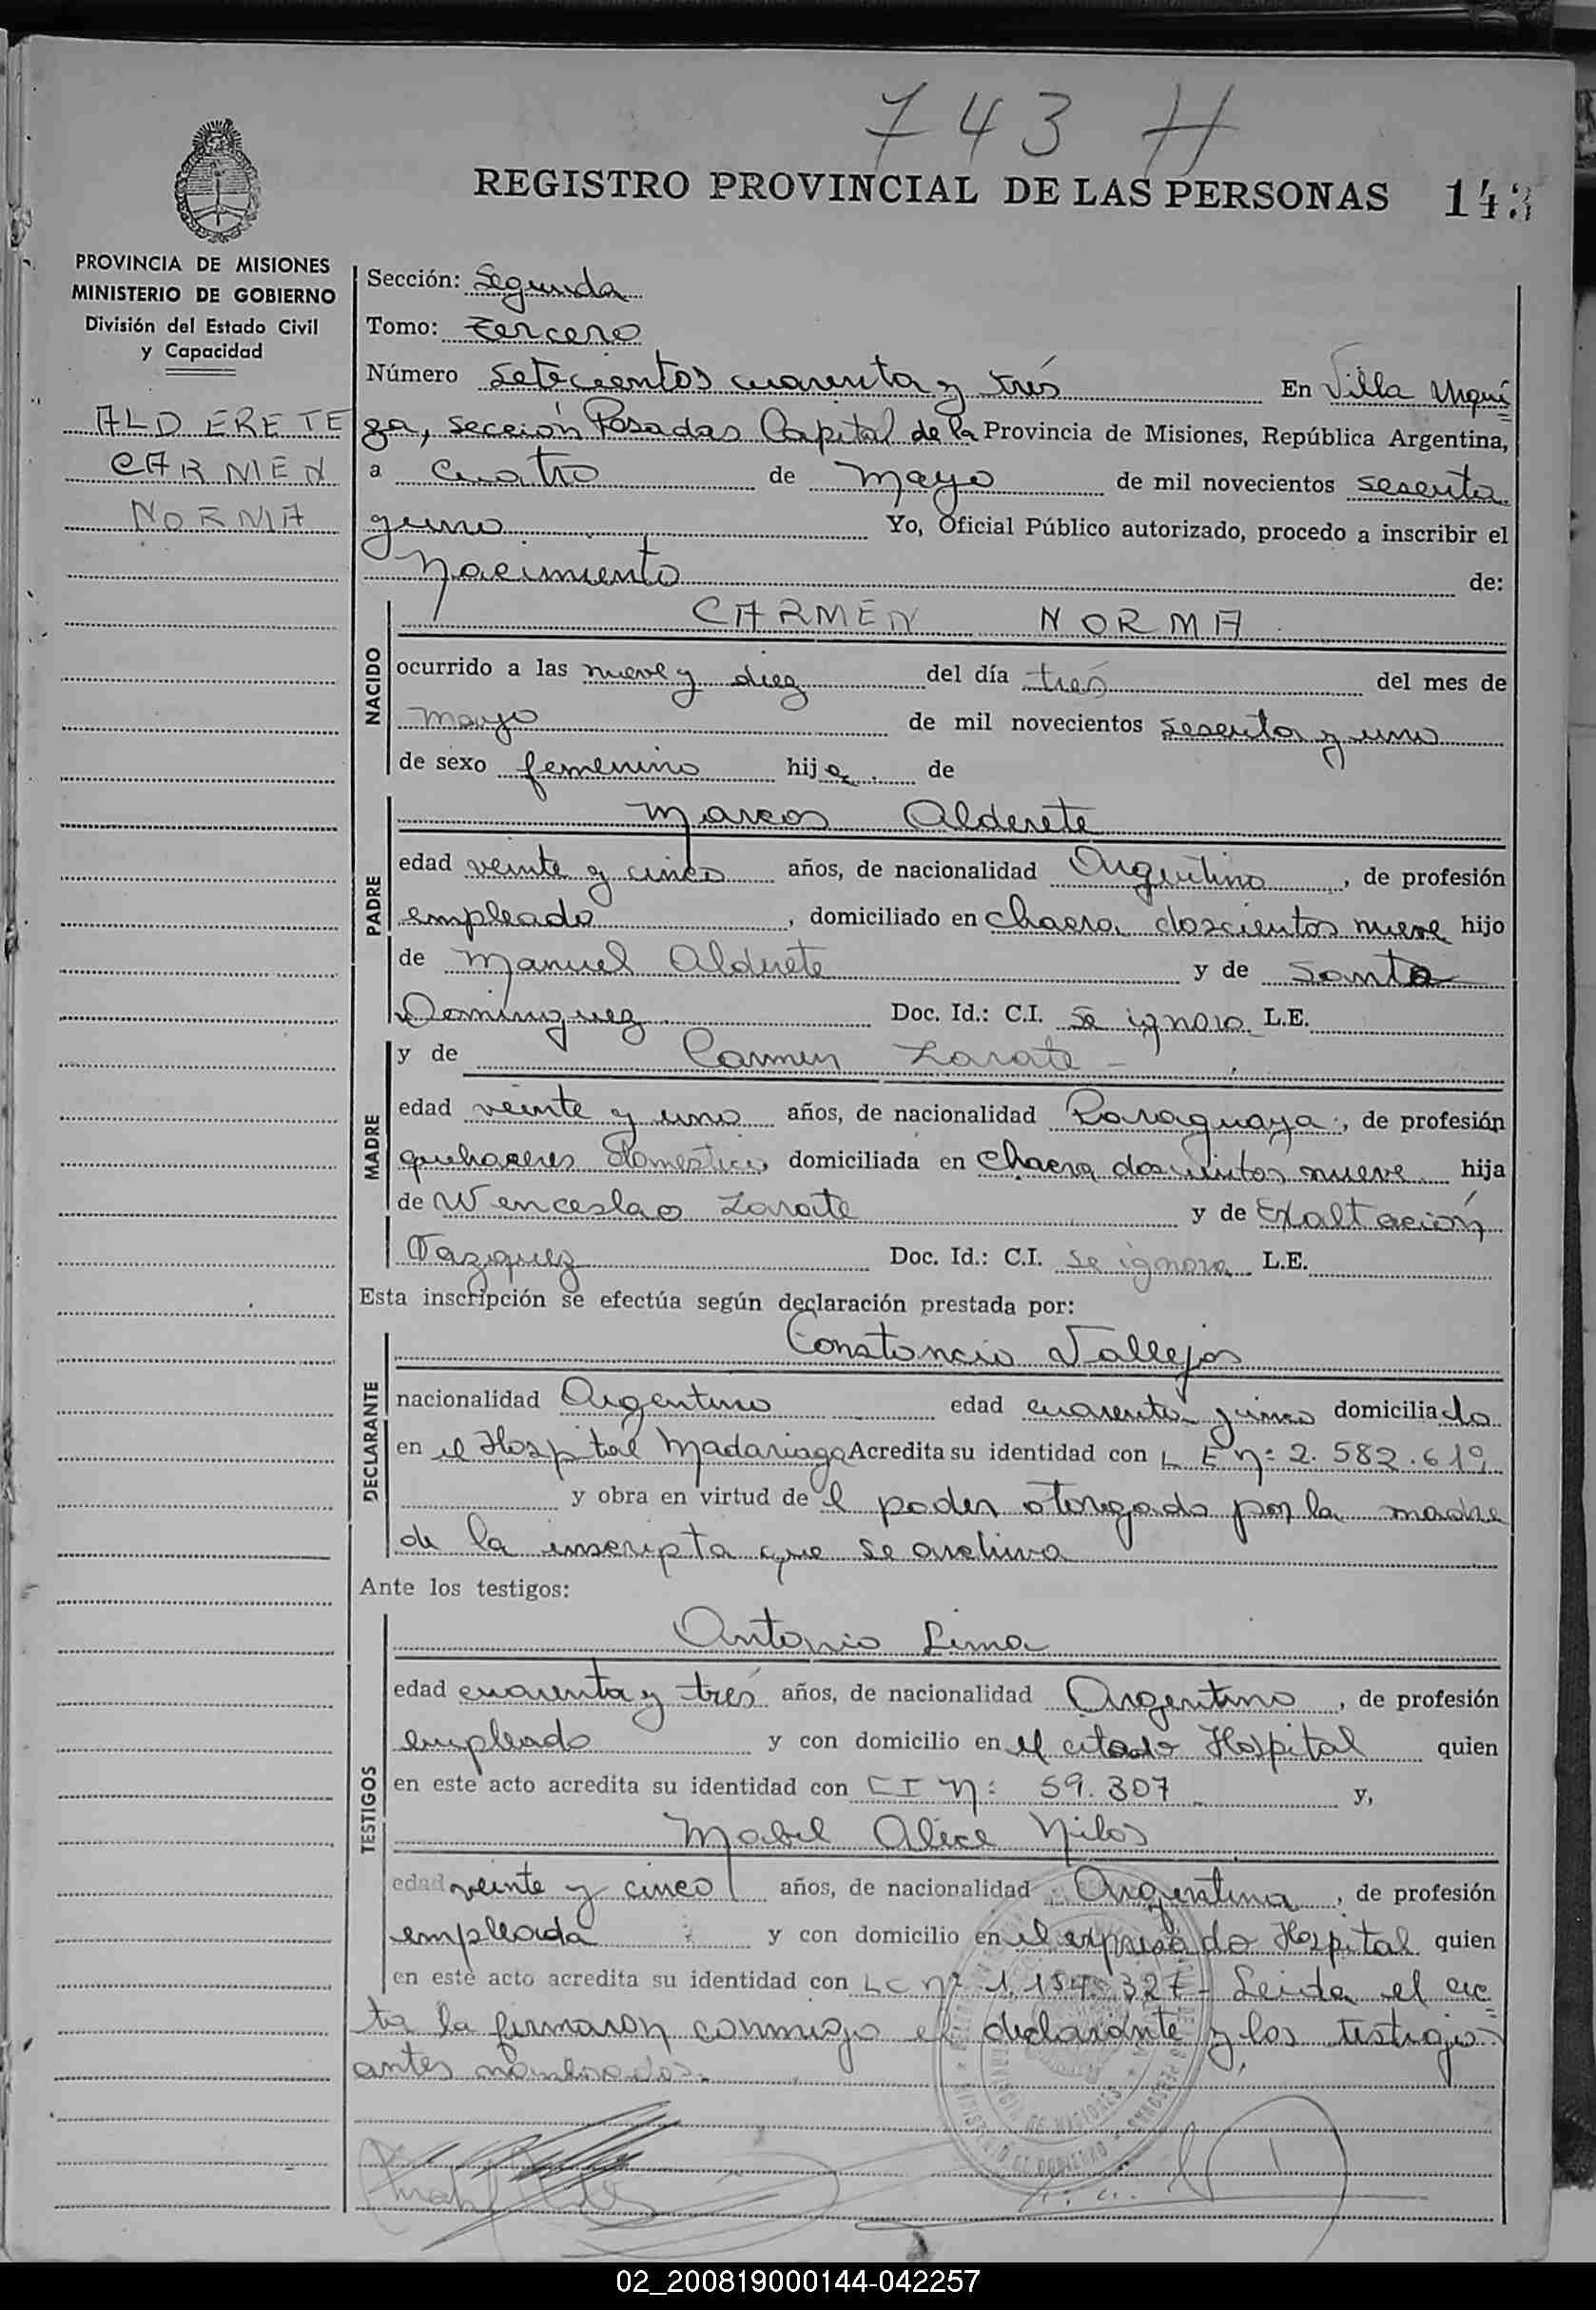 743 H
REGISTRO PROVINCIAL DE LAS PERSONAS 143
PROVINCIA DE MISIONES
MINISTERIO DE GOBIERNO
División del Estado Civil
y Capacidad
ALDERETE
CARMEN
NORMA
Sección: Segunda
Tomo: tercero
Número setecientos cuarenta y trés En Villa Urqui
za, sección Posadas Capital de la Provincia de Misiones, República Argentina,
a cuatro de mayo de mil novecientos sesenta
y uno Yo, Oficial Público autorizado, procedo a inscribir el
Nacimiento de:
CARMEN NORMA
NACIDO
ocurrido a las nueve y diez del día trés del mes de
mayo de mil novecientos sesenta y uno
de sexo femenino hija de
Marcos Alderete
PADRE
edad veinte y cinco años, de nacionalidad Argentino, de profesión
empleado, domiciliado en chacra doscientos nueve hijo
de Manuel Alderete y de Santa
Dominguez Doc. Id.: C.I. se ignora L.E.
y de Carmen Zarate -
MADRE
edad veinte y uno años, de nacionalidad Paraguaya, de profesión
quehaceres domestico, domiciliada en chacra doscientos nueve hija
de Wenceslao Zarate y de Exaltación
Vazquez Doc. Id.: C.I. se ignora L.E.
Esta inscripción se efectúa según declaración prestada por:
Constancio Vallejos
DECLARANTE
nacionalidad Argentino edad cuarenta y cinco domiciliado
en el Hospital Madariaga Acredita su identidad con L E Nº 2.582.619
y obra en virtud de el poder otorgado por la madre
de la inscripta que se archiva
Ante los testigos:
Antonio Lima
TESTIGOS
edad cuarenta y trés años, de nacionalidad Argentino, de profesión
empleado y con domicilio en el citado Hospital quien
en este acto acredita su identidad con CI Nº 59.307 y,
Mabel Alice
edad veinte y cinco años, de nacionalidad Argentina, de profesión
empleada y con domicilio en el expresado Hospital quien
en este acto acredita su identidad con LC Nº - Leida el ac
ta la firmaron conmigo el declarante y los testigos
antes nombrados.
02_200819000144-042257